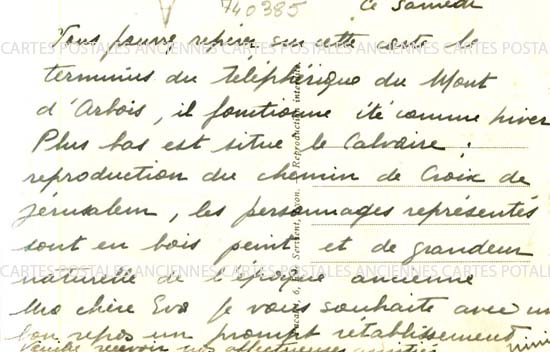 740385
Ce Samedi
Vous pourrez repérer sur cette carte le
terminus du téléphérique du Mont
d'Arbois, il fonctionne été comme hiver
Plus bas est situé le Calvaire ;
reproduction du chemin de Croix de
Jérusalem, les personnages représentés
sont en bois peint et de grandeur
naturelle de l'époque ancienne
Ma chère Eva je vous souhaite avec un
bon repos un prompt rétablissement
Veuillez recevoir nos affectueuses amitiés
CARTES POSTALES ANCIENNES CARTES POSTALES ANCIENNES CARTES POSTALES
Lyon. Reproduction interdite